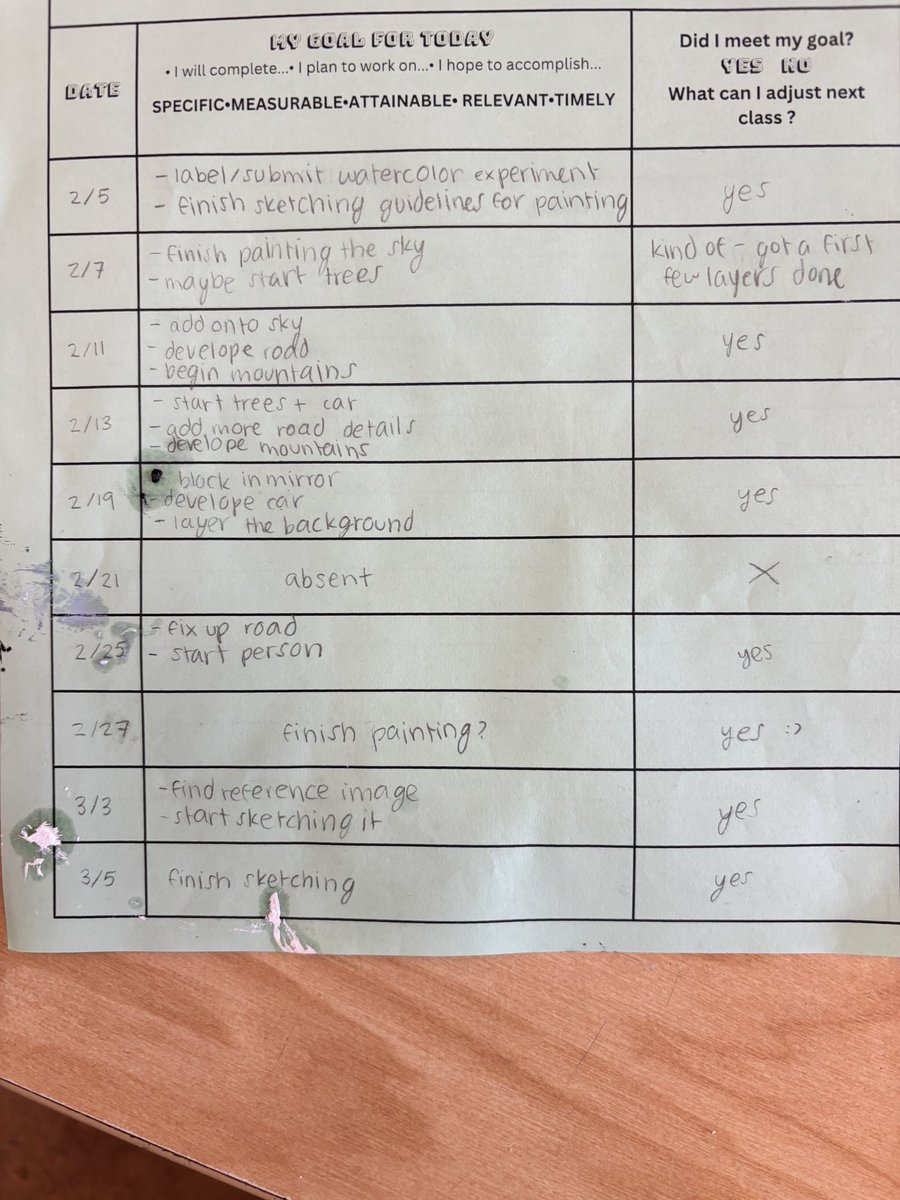 DATE
MY GOAL FOR TODAY
• I will complete...• I plan to work on...• I hope to accomplish...
SPECIFIC•MEASURABLE•ATTAINABLE• RELEVANT•TIMELY
Did I meet my goal?
YES NO
What can I adjust next
class ?
2/5
- label/submit watercolor experiment
- finish sketching guidelines for painting
yes
2/7
- finish painting the sky
- maybe start trees
kind of - got a first
few layers done
2/11
- add onto sky
- develope road
- begin mountains
yes
2/13
- start trees + car
- add more road details
- develope mountains
yes
2/19
block in mirror
- develope car
- layer the background
yes
2/21
absent
X
2/25
- fix up road
- start person
yes
2/27
finish painting?
yes :)
3/3
- find reference image
- start sketching it
yes
3/5
finish sketching
yes